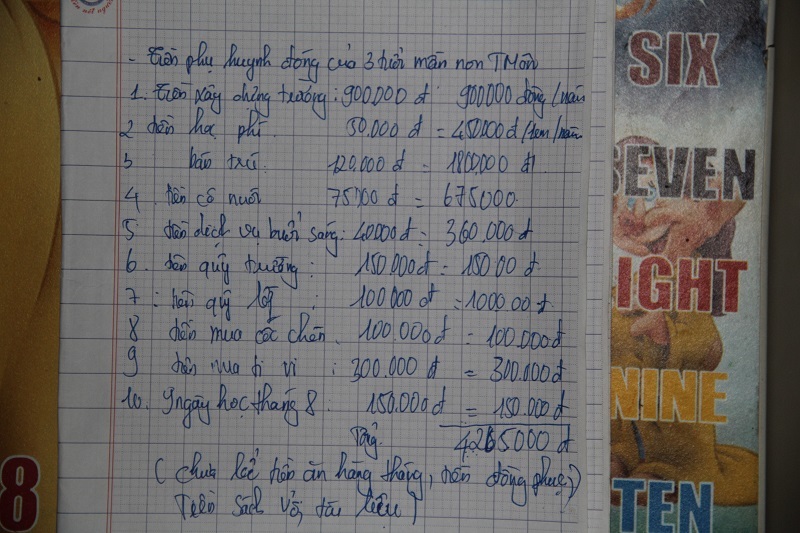 - Tiền phụ huynh đóng của 3 tuổi mần non TMôn
1. Tiền xây dựng trường: 900000 đ: 900000 đồng/năm
2 tiền học phí. 50.000 đ = 450000 đ/1em/năm
3 bán trú 120.000 đ = 1800,000 đ
4. tiền cô nuôi 75000 đ = 675000
5 tiền dịch vụ buổi sáng: 40000 đ = 360.000 đ
6. tiền quỹ trường: 150.000 đ = 150.00 đ
7: tiền quỹ lớp: 100000 đ = 1000.00 đ
8 tiền mua cốc chén. 100.000 đ = 100.000 đ
9 tiền mua ti vi: 300.000 đ = 300.000 đ
10. 9 ngày học tháng 8: 150.000 đ = 150.000 đ
Tổng. 4265000 đ
(chưa kể tiền ăn hàng tháng, tiền đồng phục,)
Tiền sách vở, tài liệu)
SIX
SEVEN
IGHT
NINE
TEN
8